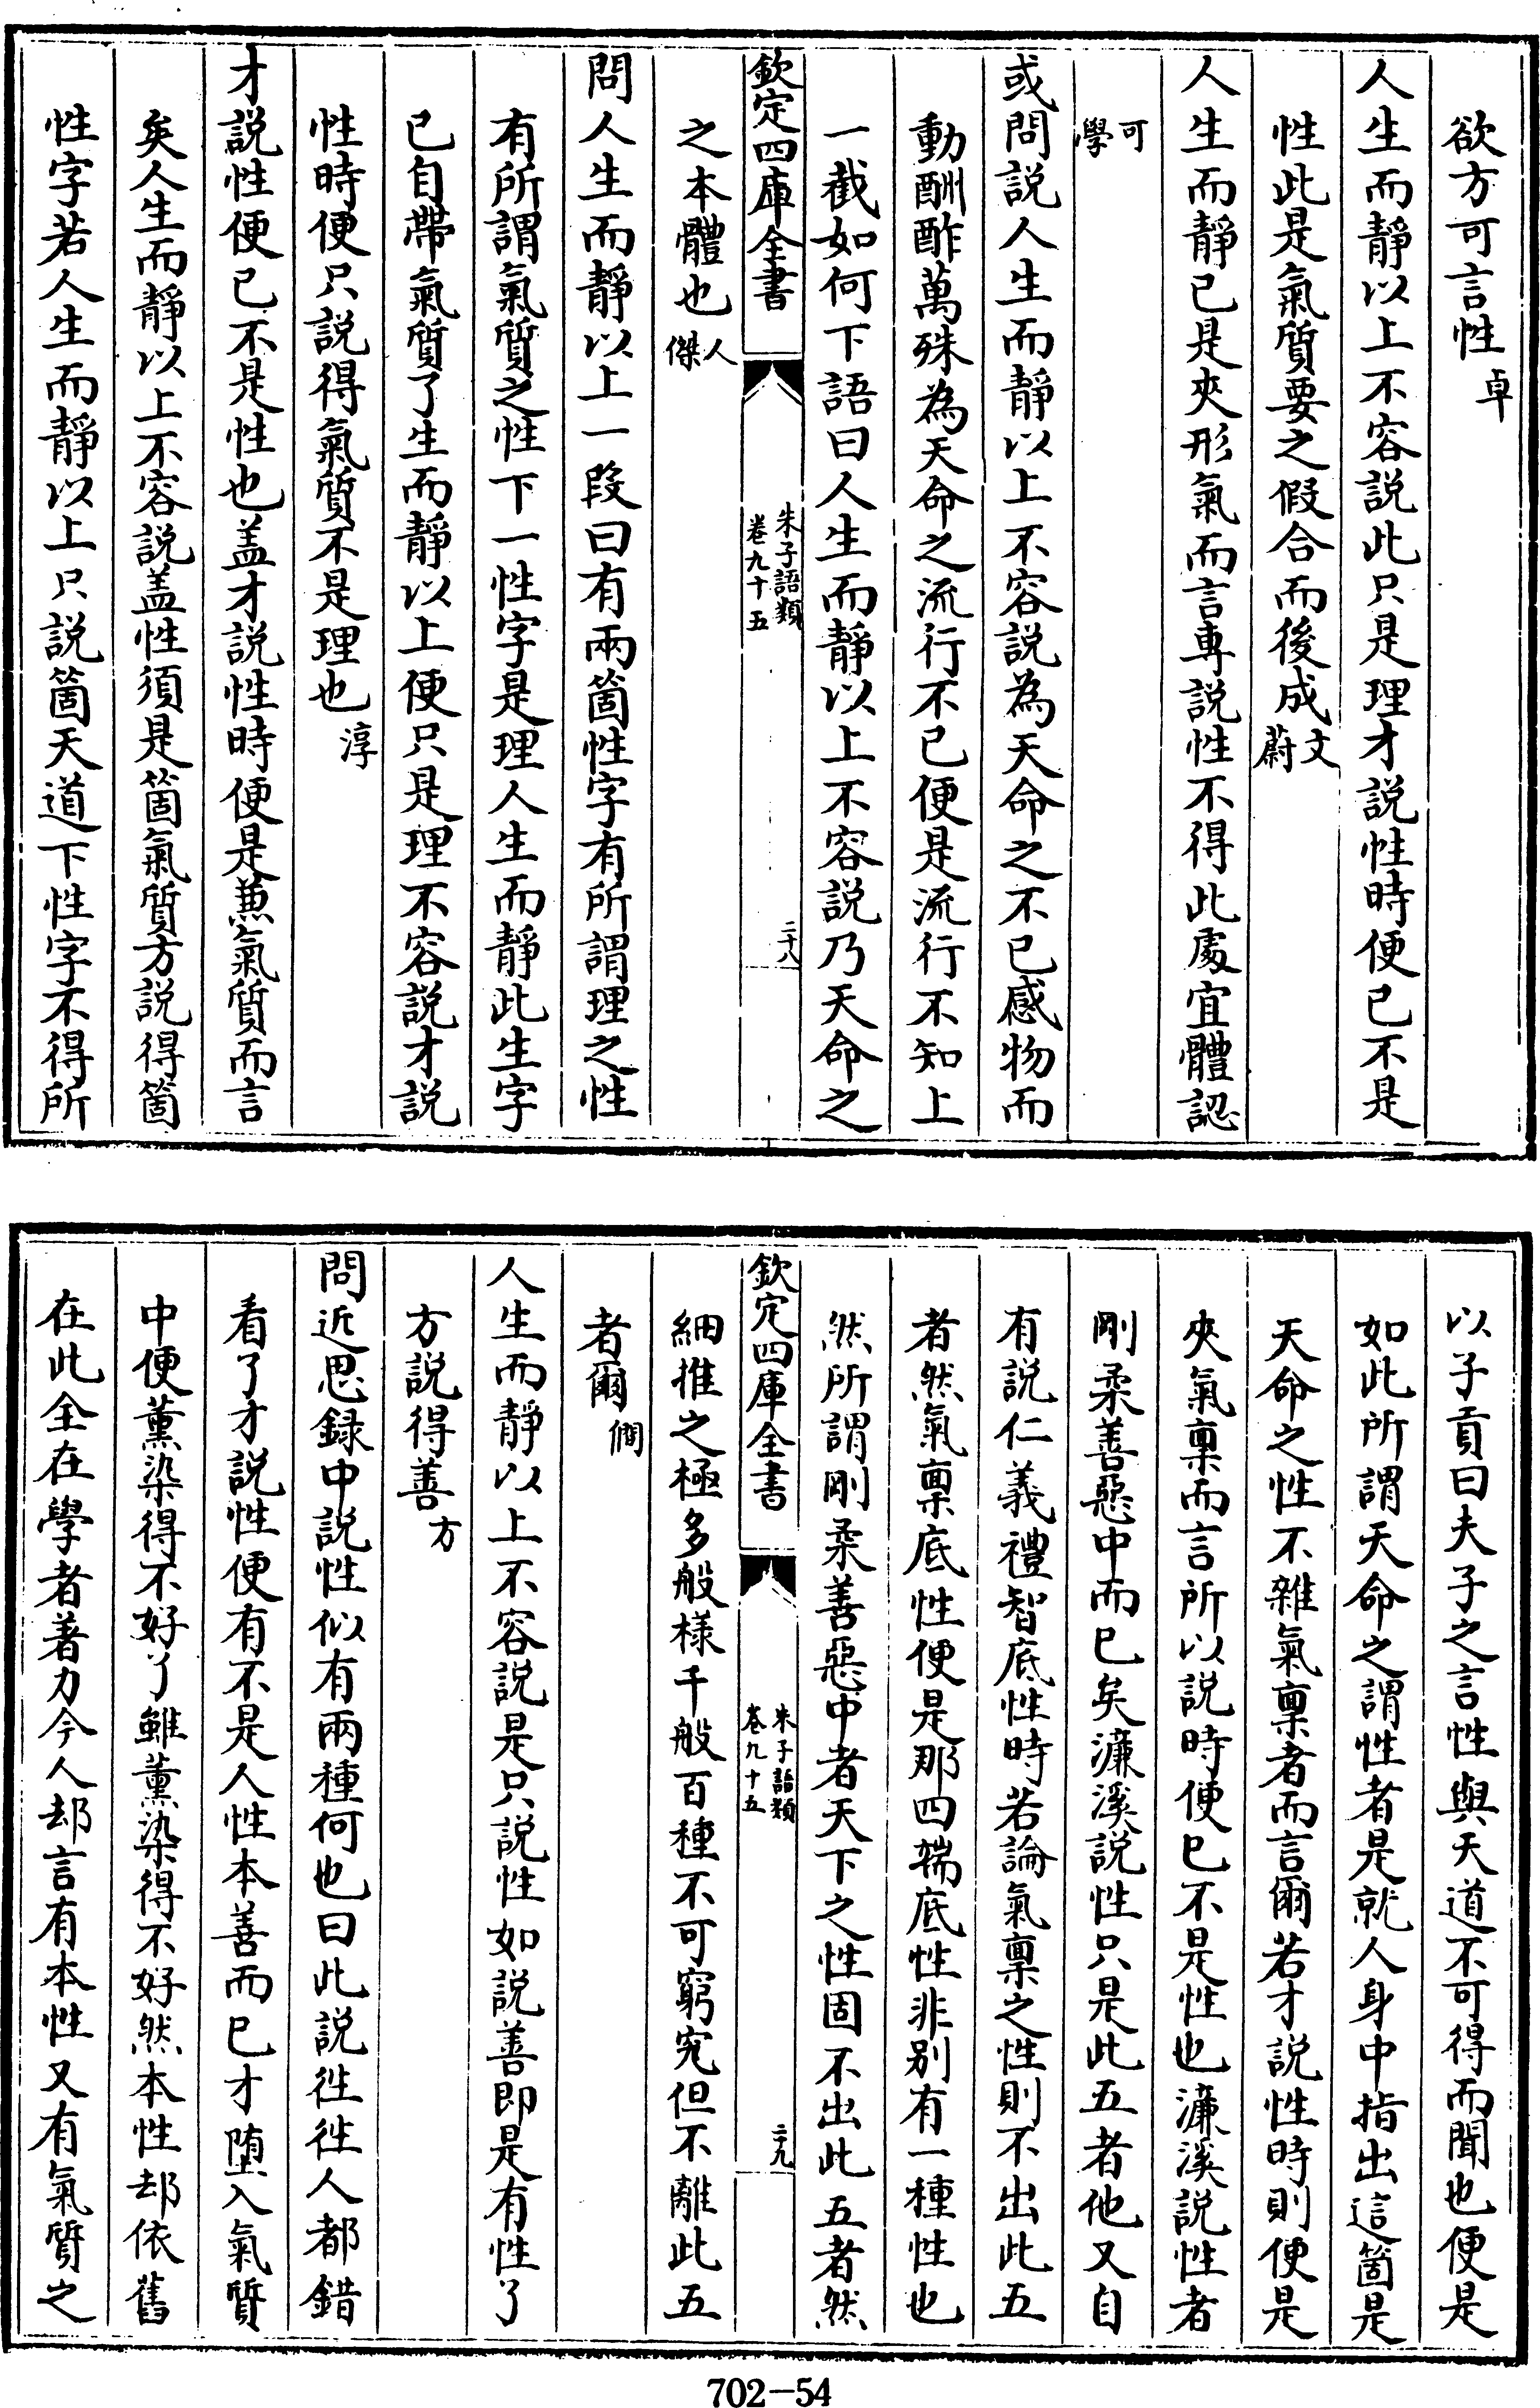 欲方可言性卓
人生而靜以上不容説此只是理才説性時便已不是
性此是氣質要之假合而後成文蔚
人生而靜已是夾形氣而言專説性不得此處宜體認
可學
或問説人生而靜以上不容説為天命之不已感物而
動酬酢萬殊為天命之流行不已便是流行不知上
一截如何下語曰人生而靜以上不容説乃天命之
欽定四庫全書
朱子語類
卷九十五
二十八
之本體也人傑
問人生而靜以上一段曰有兩箇性字有所謂理之性
有所謂氣質之性下一性字是理人生而靜此生字
已自帶氣質了生而靜以上便只是理不容説才説
性時便只説得氣質不是理也淳
才説性便已不是性也盖才説性時便是兼氣質而言
矣人生而靜以上不容説盖性須是箇氣質方説得箇
性字若人生而靜以上只説箇天道下性字不得所
以子貢曰夫子之言性與天道不可得而聞也便是
如此所謂天命之謂性者是就人身中指出這箇是
天命之性不雜氣稟者而言爾若才説性時則便是
夾氣稟而言所以説時便已不是性也濂溪説性者
剛柔善惡中而已矣濂溪説性只是此五者他又自
有説仁義禮智底性時若論氣稟之性則不出此五
者然氣稟底性便是那四端底性非别有一種性也
然所謂剛柔善惡中者天下之性固不出此五者然
欽定四庫全書
朱子語類
卷九十五
二十九
細推之極多般様千般百種不可窮究但不離此五
者爾僩
人生而靜以上不容説是只説性如説善即是有性了
方説得善方
問近思録中説性似有兩種何也曰此説往往人都錯
看了才説性便有不是人性本善而已才堕入氣質
中便薰染得不好了雖薰染得不好然本性却依舊
在此全在學者著力今人却言有本性又有氣質之
702-54